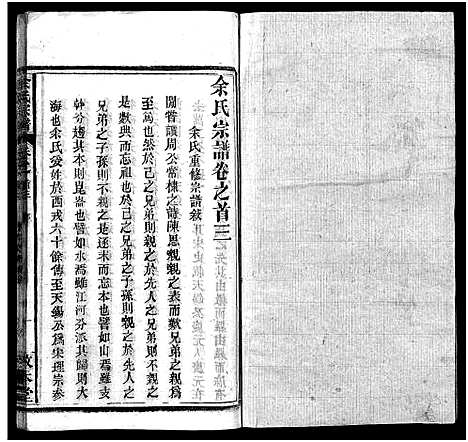 余氏宗譜卷之首三
余氏重修宗譜敘
閒嘗讀周公常棣之詩陳思親親之表而歎兄弟之親爲
至篤也然於己之兄弟則親之於先人之兄弟則不親之
是數典而忘祖也於己之兄弟之子孫則親之於先人之
兄弟之子孫則不親之是逐末而忘本也譬如山焉雖支
幹分趨其本則昆崙也譬如水焉雖江河分派其歸則大
海也余氏受姓於西戎六十餘傳至天錫公爲宋理宗參
余氏宗譜